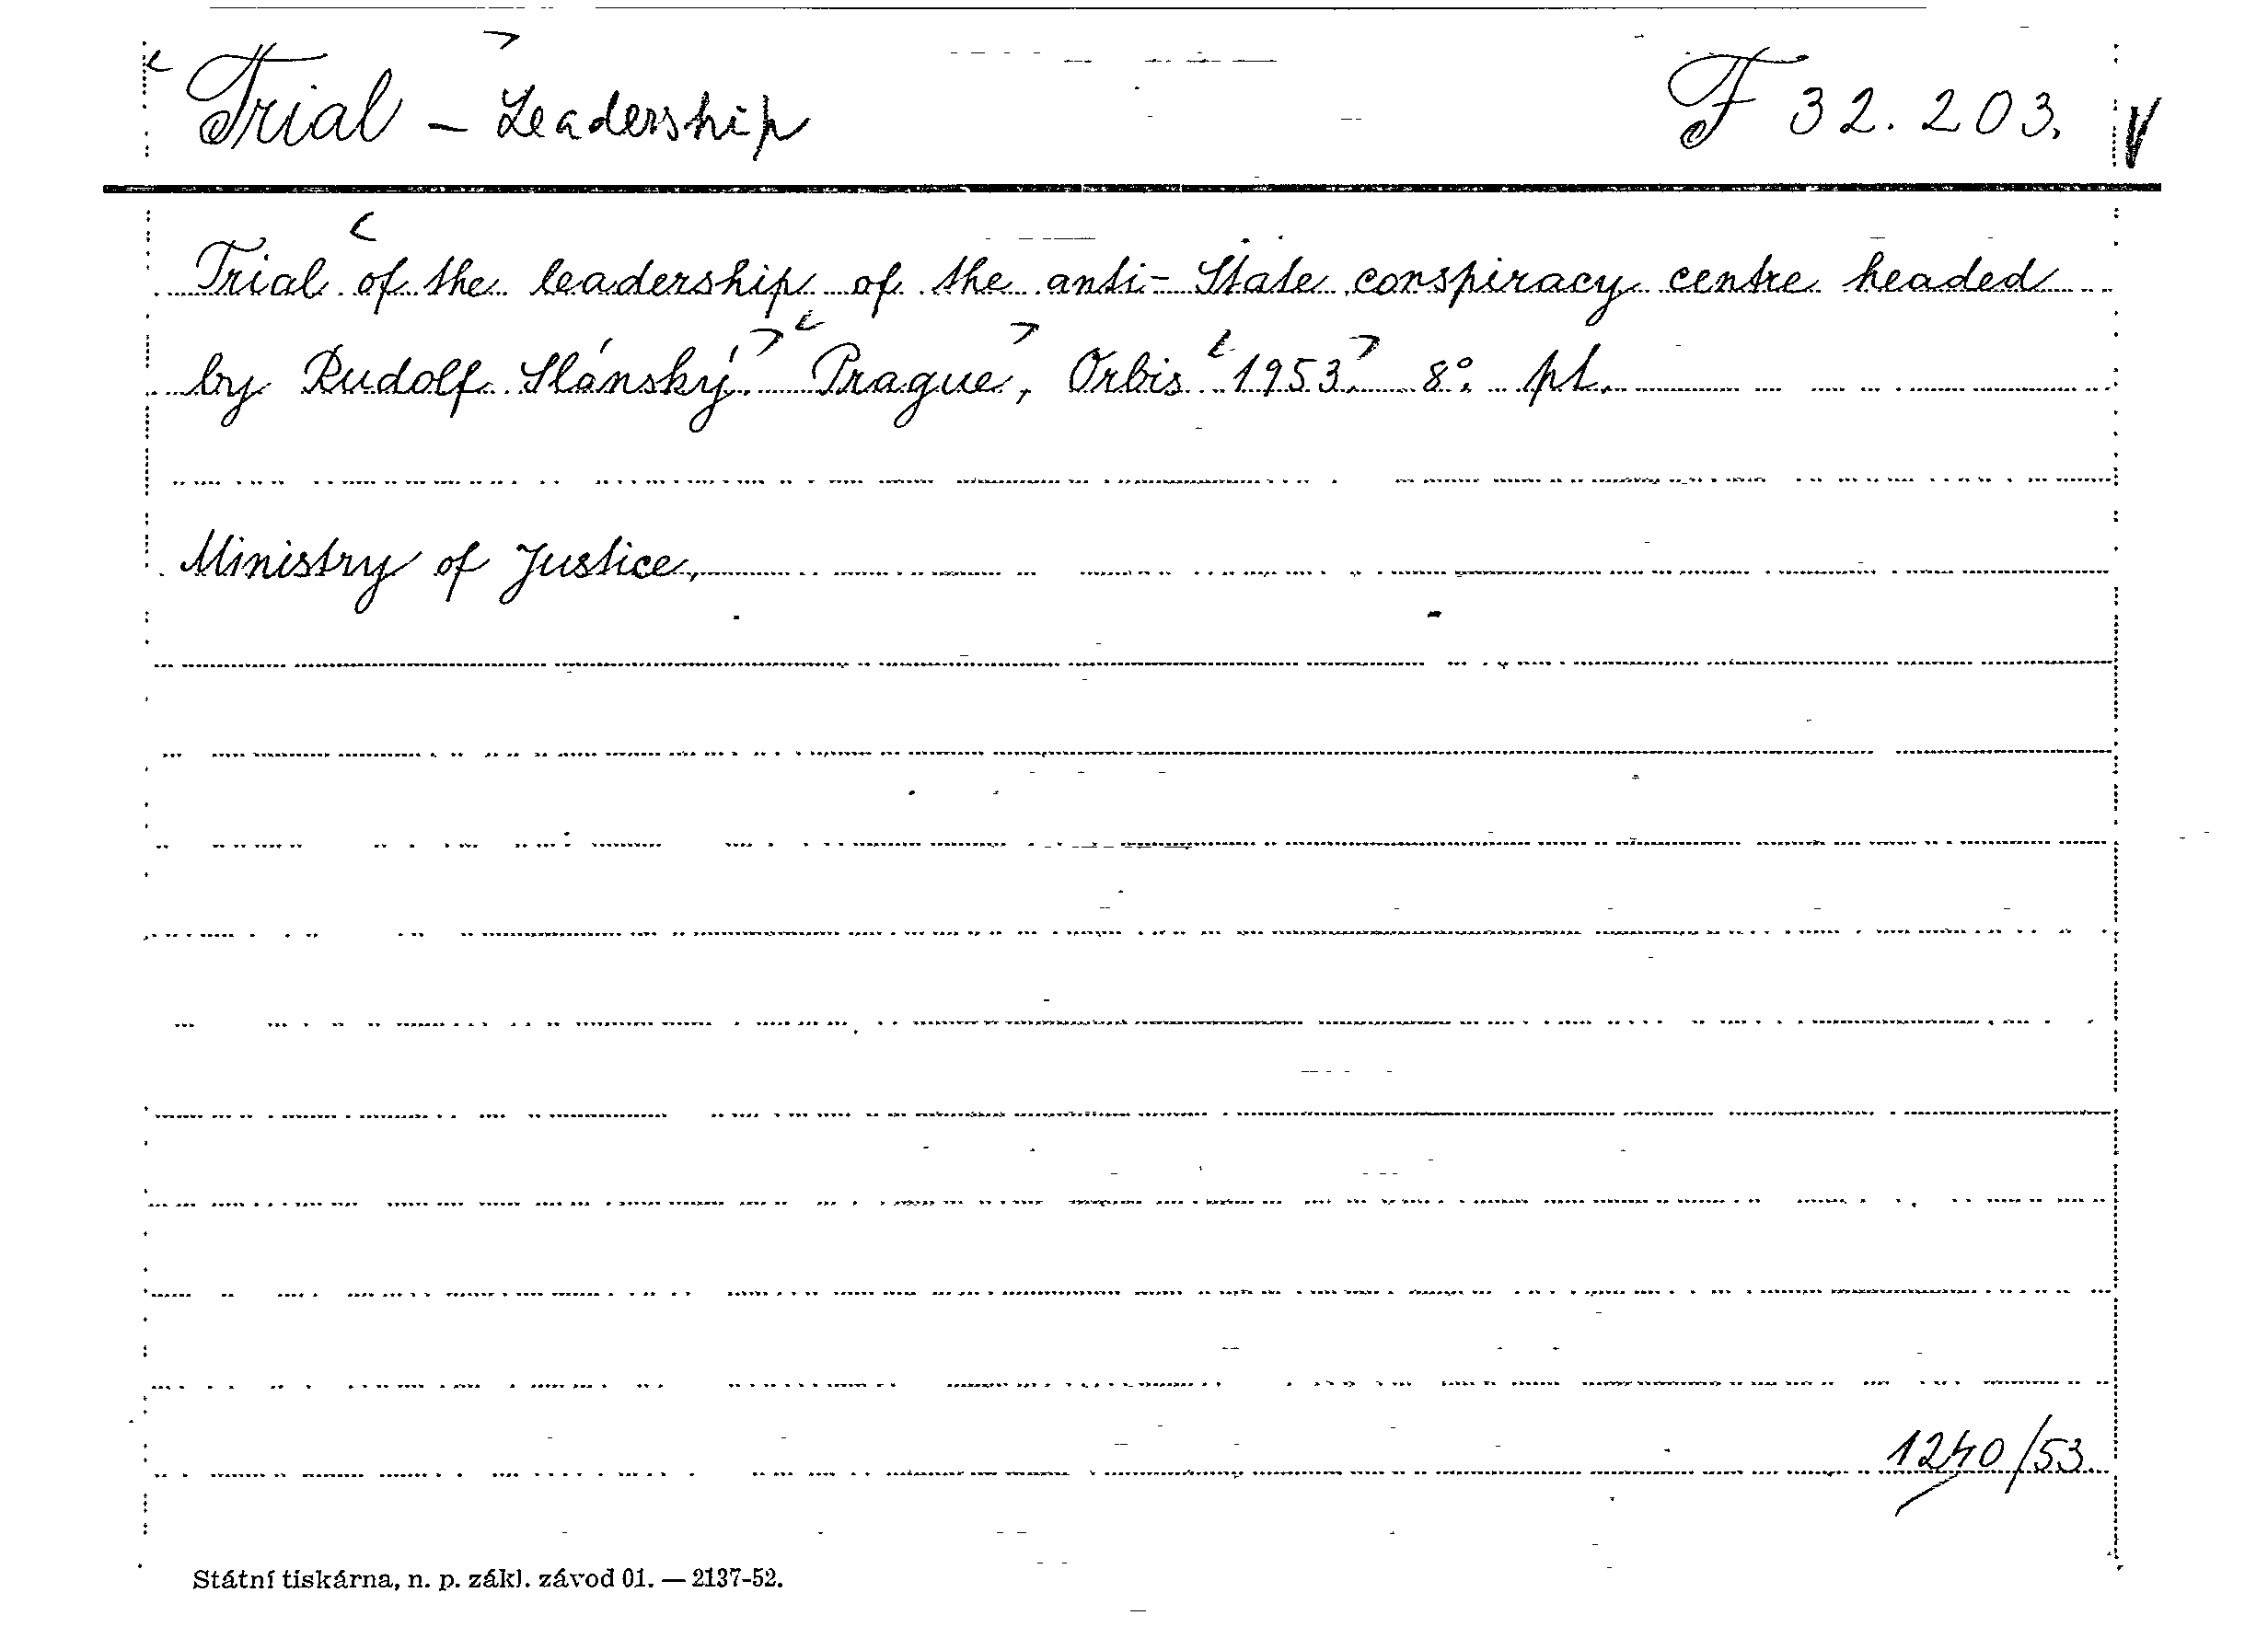 Trial - Leadership F 32.203. V
Trial of the leadership of the anti-State conspiracy centre headed
by Rudolf Slánský. Prague, Orbis 1953. 8°. pt.
Ministry of Justice.
1240/53.
Státní tiskárna, n. p. zákl. závod 01. — 2137-52.